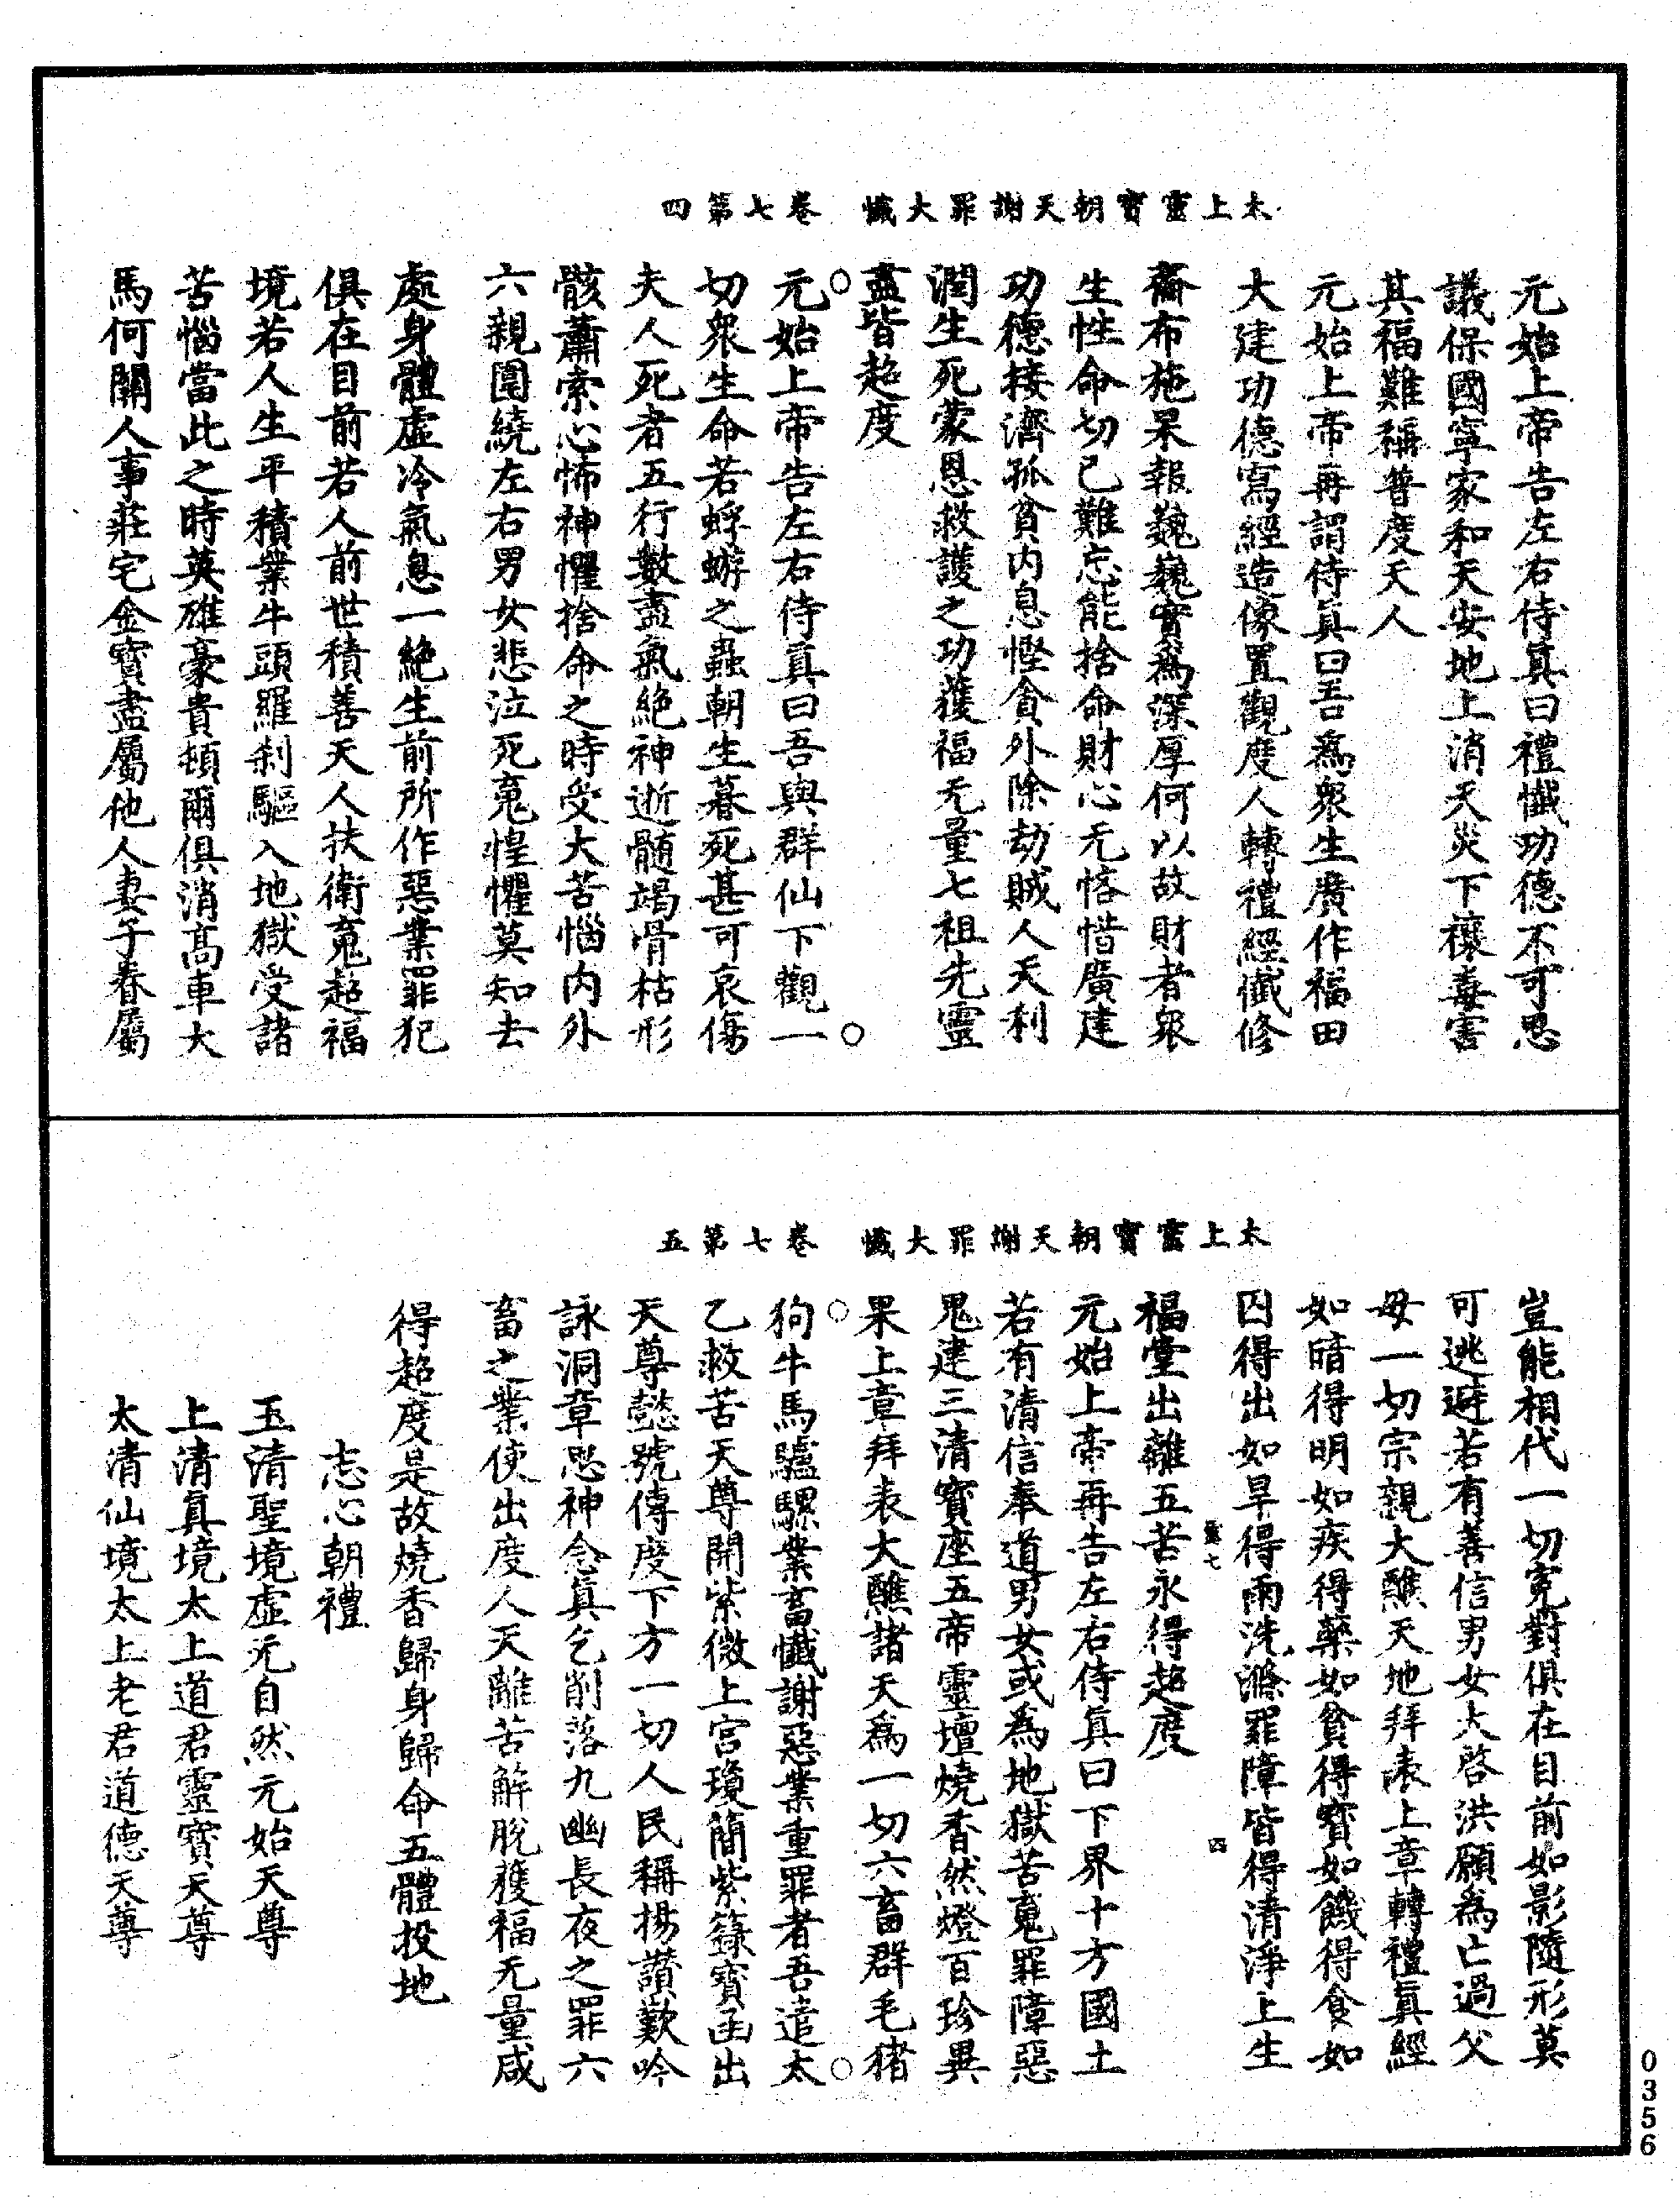 太上靈寶朝天謝罪大懺　卷七第四
元始上帝告左右侍真曰禮懺功德不可思
議保國寧家和天安地上消天災下禳毒害
其福難稱普度天人
元始上帝再謂侍真曰吾為衆生廣作福田
大建功德寫經造像置觀度人轉禮經懺修
齋布施果報巍巍實為深厚何以故財者衆
生性命切己難忘能捨命財心无悋惜廣建
功德接濟孤貧内息慳貪外除劫賊人天利
潤生死蒙恩救護之功獲福无量七祖先靈
盡皆超度
元始上帝告左右侍真曰吾與群仙下觀一
切衆生命若蜉蝣之蟲朝生暮死甚可哀傷
夫人死者五行數盡氣絶神逝髓竭骨枯形
骸蕭索心怖神懼捨命之時受大苦惱内外
六親圍繞左右男女悲泣死䰟惶懼莫知去
處身體虛冷氣息一絶生前所作惡業罪犯
俱在目前若人前世積善天人扶衛䰟超福
境若人生平積業牛頭羅刹驅入地獄受諸
苦惱當此之時英雄豪貴頓爾俱消高車大
馬何關人事莊宅金寶盡屬他人妻子眷屬
太上靈寶朝天謝罪大懺　卷七第五
豈能相代一切寃對俱在目前如影隨形莫
可逃避若有善信男女大啓洪願為亡過父
母一切宗親大醮天地拜表上章轉禮真經
如暗得明如疾得藥如貧得寶如饑得食如
囚得出如旱得雨洗滌罪障皆得清淨上生
福堂出離五苦永得超度
元始上帝再告左右侍真曰下界十方國土
若有清信奉道男女或為地獄苦䰟罪障惡
鬼建三清寶座五帝靈壇燒香然燈百珍異
果上章拜表大醮諸天為一切六畜群毛猪
狗牛馬驢騾業畜懺謝惡業重罪者吾遣太
乙救苦天尊開紫微上宮瓊簡紫籙寶函出
天尊懿號傳度下方一切人民稱揚讃歎吟
詠洞章思神念真乞削落九幽長夜之罪六
畜之業使出度人天離苦解脱獲福无量咸
得超度是故燒香歸身歸命五體投地
志心朝禮
玉清聖境虛无自然元始天尊
上清真境太上道君靈寶天尊
太清仙境太上老君道德天尊
0356